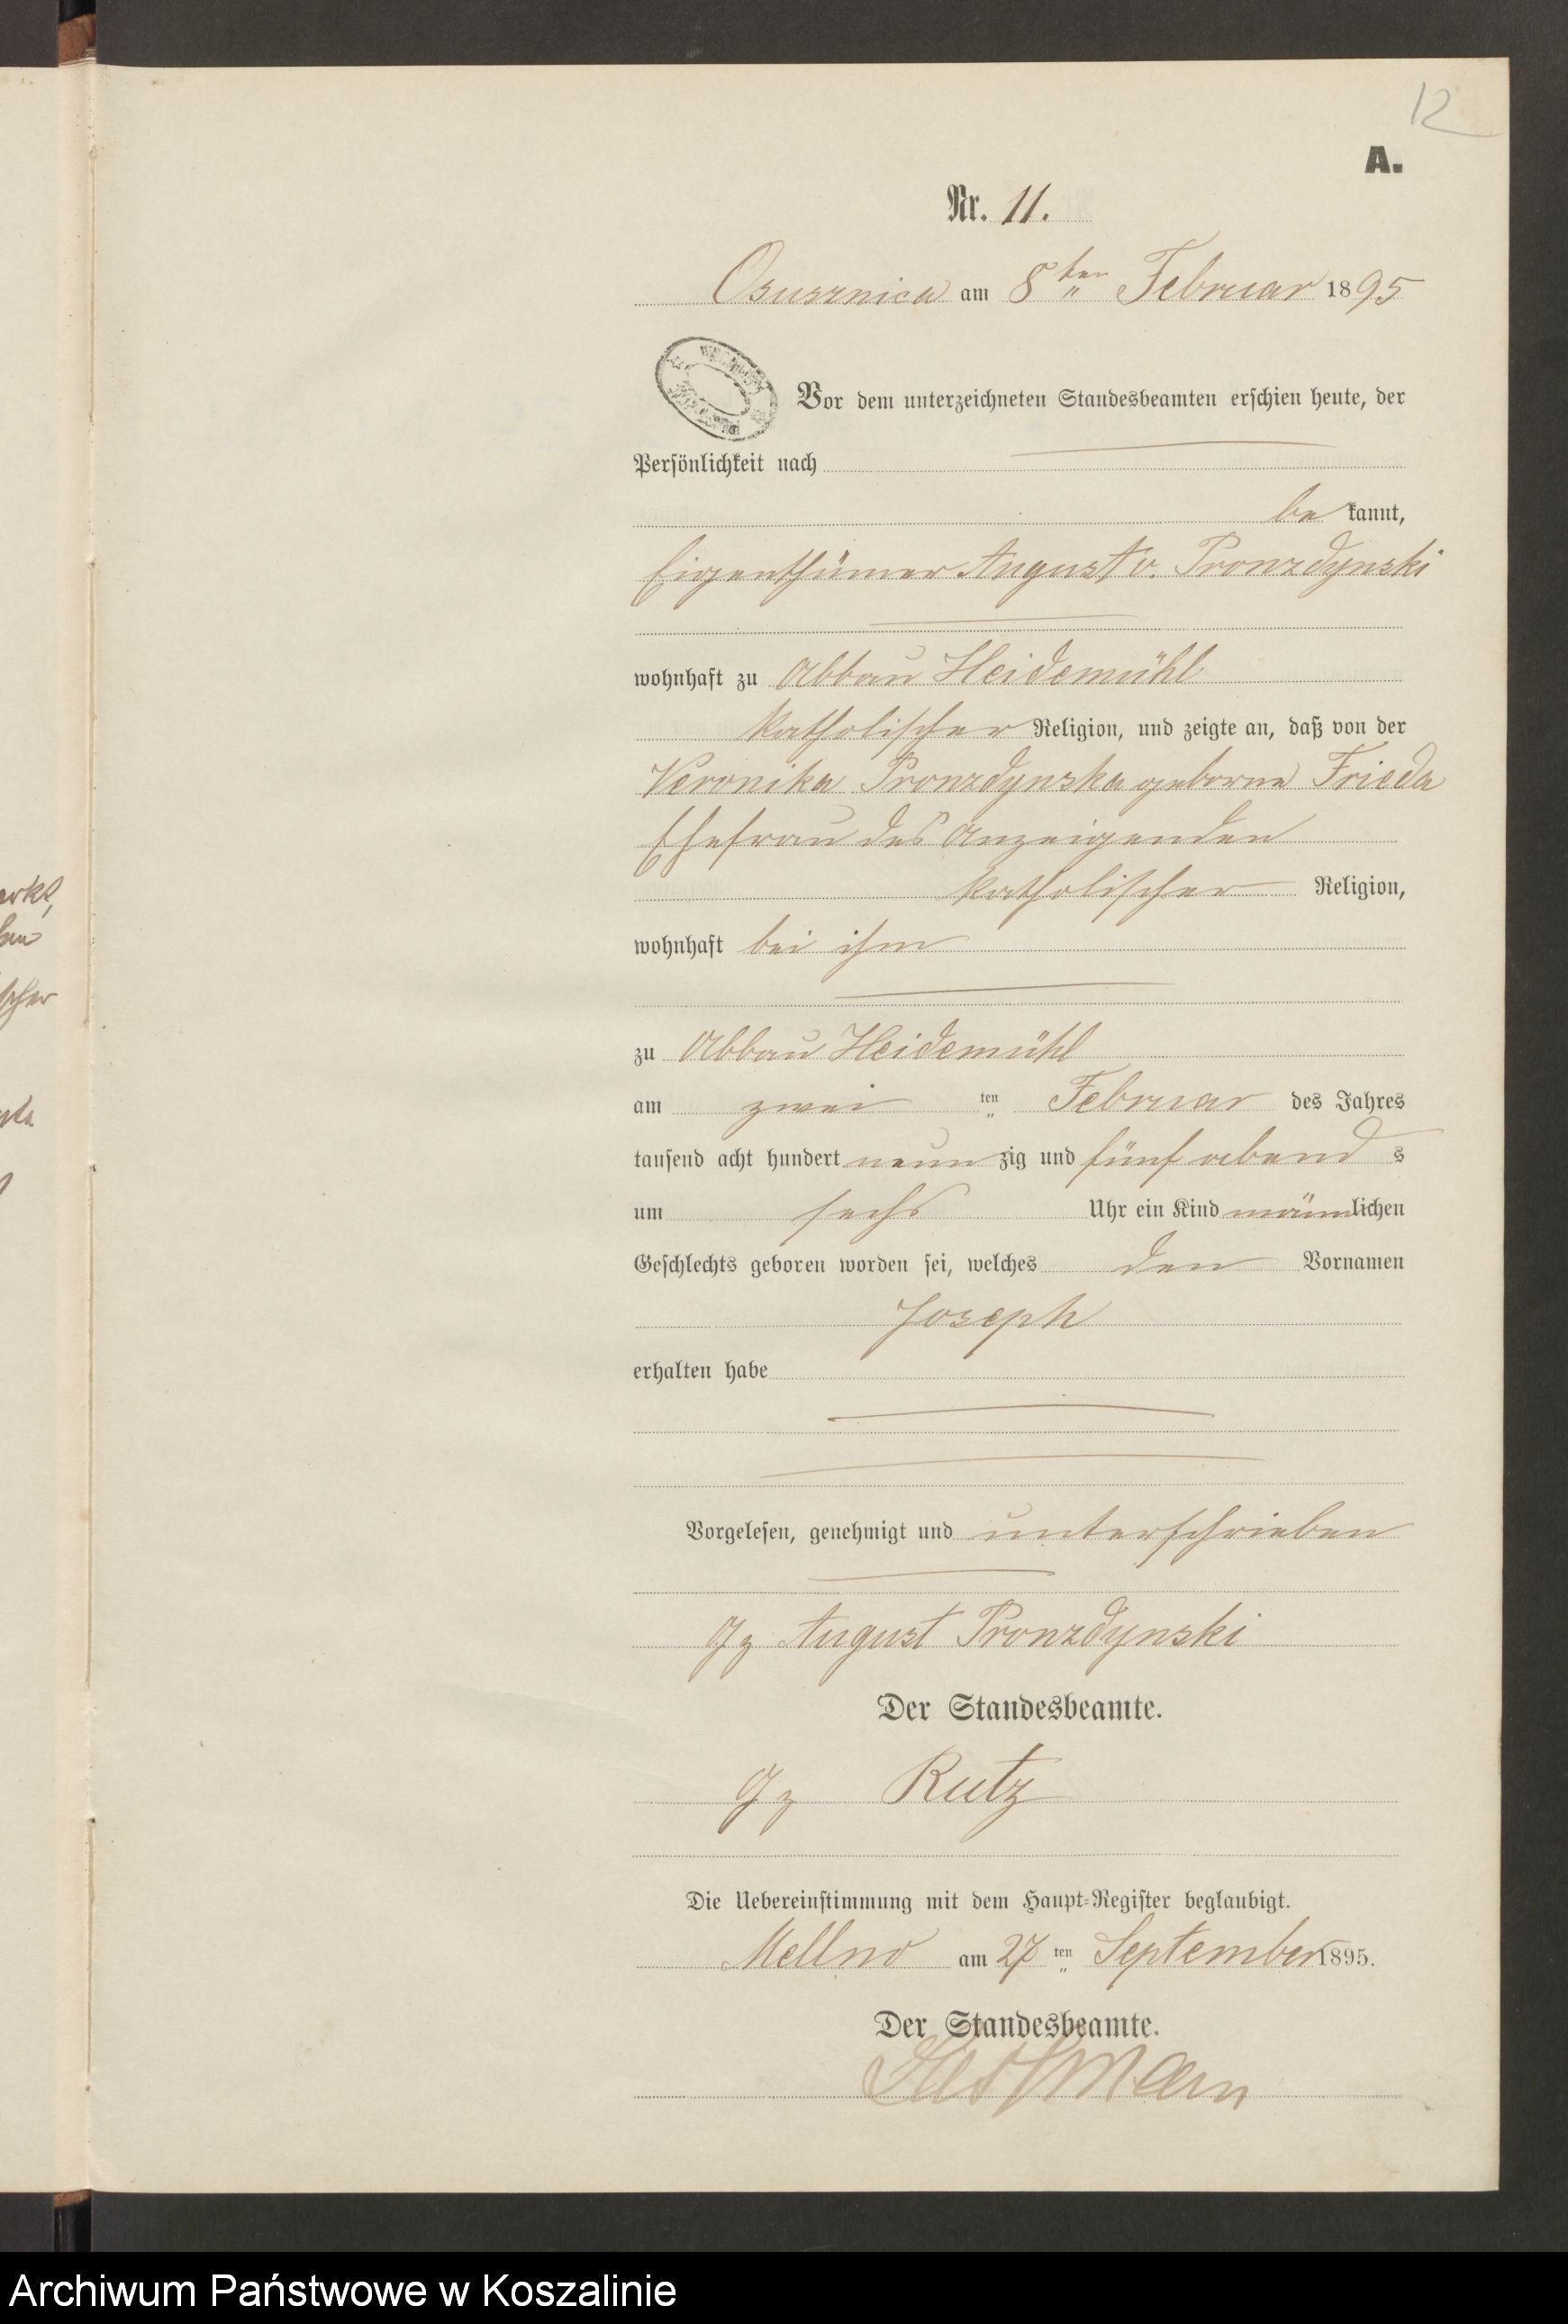 12
A.
Nr. 11.
Osusznica am 8ten Februar 1895
Vor dem unterzeichneten Standesbeamten erschien heute, der
Persönlichkeit nach
be kannt,
Eigenthümer August v. Pronzdynski
wohnhaft zu Abbau Heidemühl
katholischer Religion, und zeigte an, daß von der
Veronika Pronzdynska geborne Frieda
Ehefrau des Anzeigenden
katholischer Religion,
wohnhaft bei ihm
zu Abbau Heidemühl
am zwei ten Februar des Jahres
tausend acht hundert neun zig und fünf abend s
um sechs Uhr ein Kind männlichen
Geschlechts geboren worden sei, welches den Vornamen
Joseph
erhalten habe
Vorgelesen, genehmigt und unterschrieben
gz August Pronzdynski
Der Standesbeamte.
gz Rutz
Die Uebereinstimmung mit dem Haupt-Register beglaubigt.
Mellno am 27 ten September 1895.
Der Standesbeamte.
Archiwum Państwowe w Koszalinie